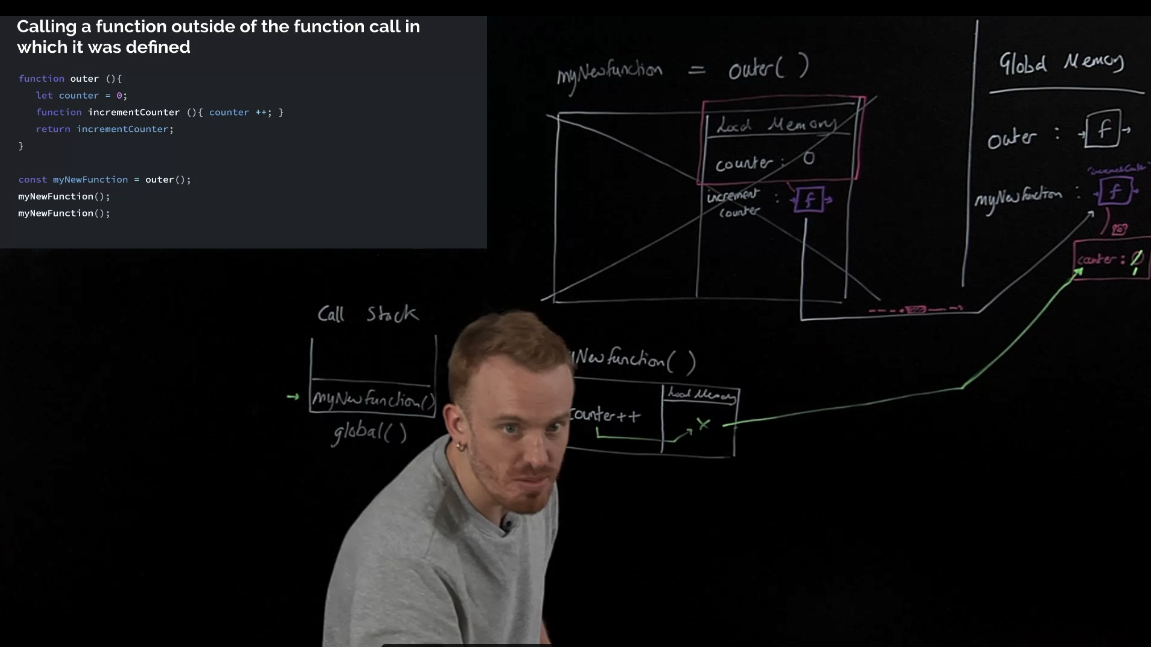 Calling a function outside of the function call in
which it was defined
function outer (){
let counter = 0;
function incrementCounter (){ counter ++; }
return incrementCounter;
}
const myNewFunction = outer();
myNewFunction();
myNewFunction();
myNewfunction = outer( )
Local Memory
counter : 0
increment
counter : f
Global Memory
outer : f
myNewfunction : f
counter : 0
1
Call Stack
myNewfunction()
global()
Newfunction( )
Local Memory
counter++
x